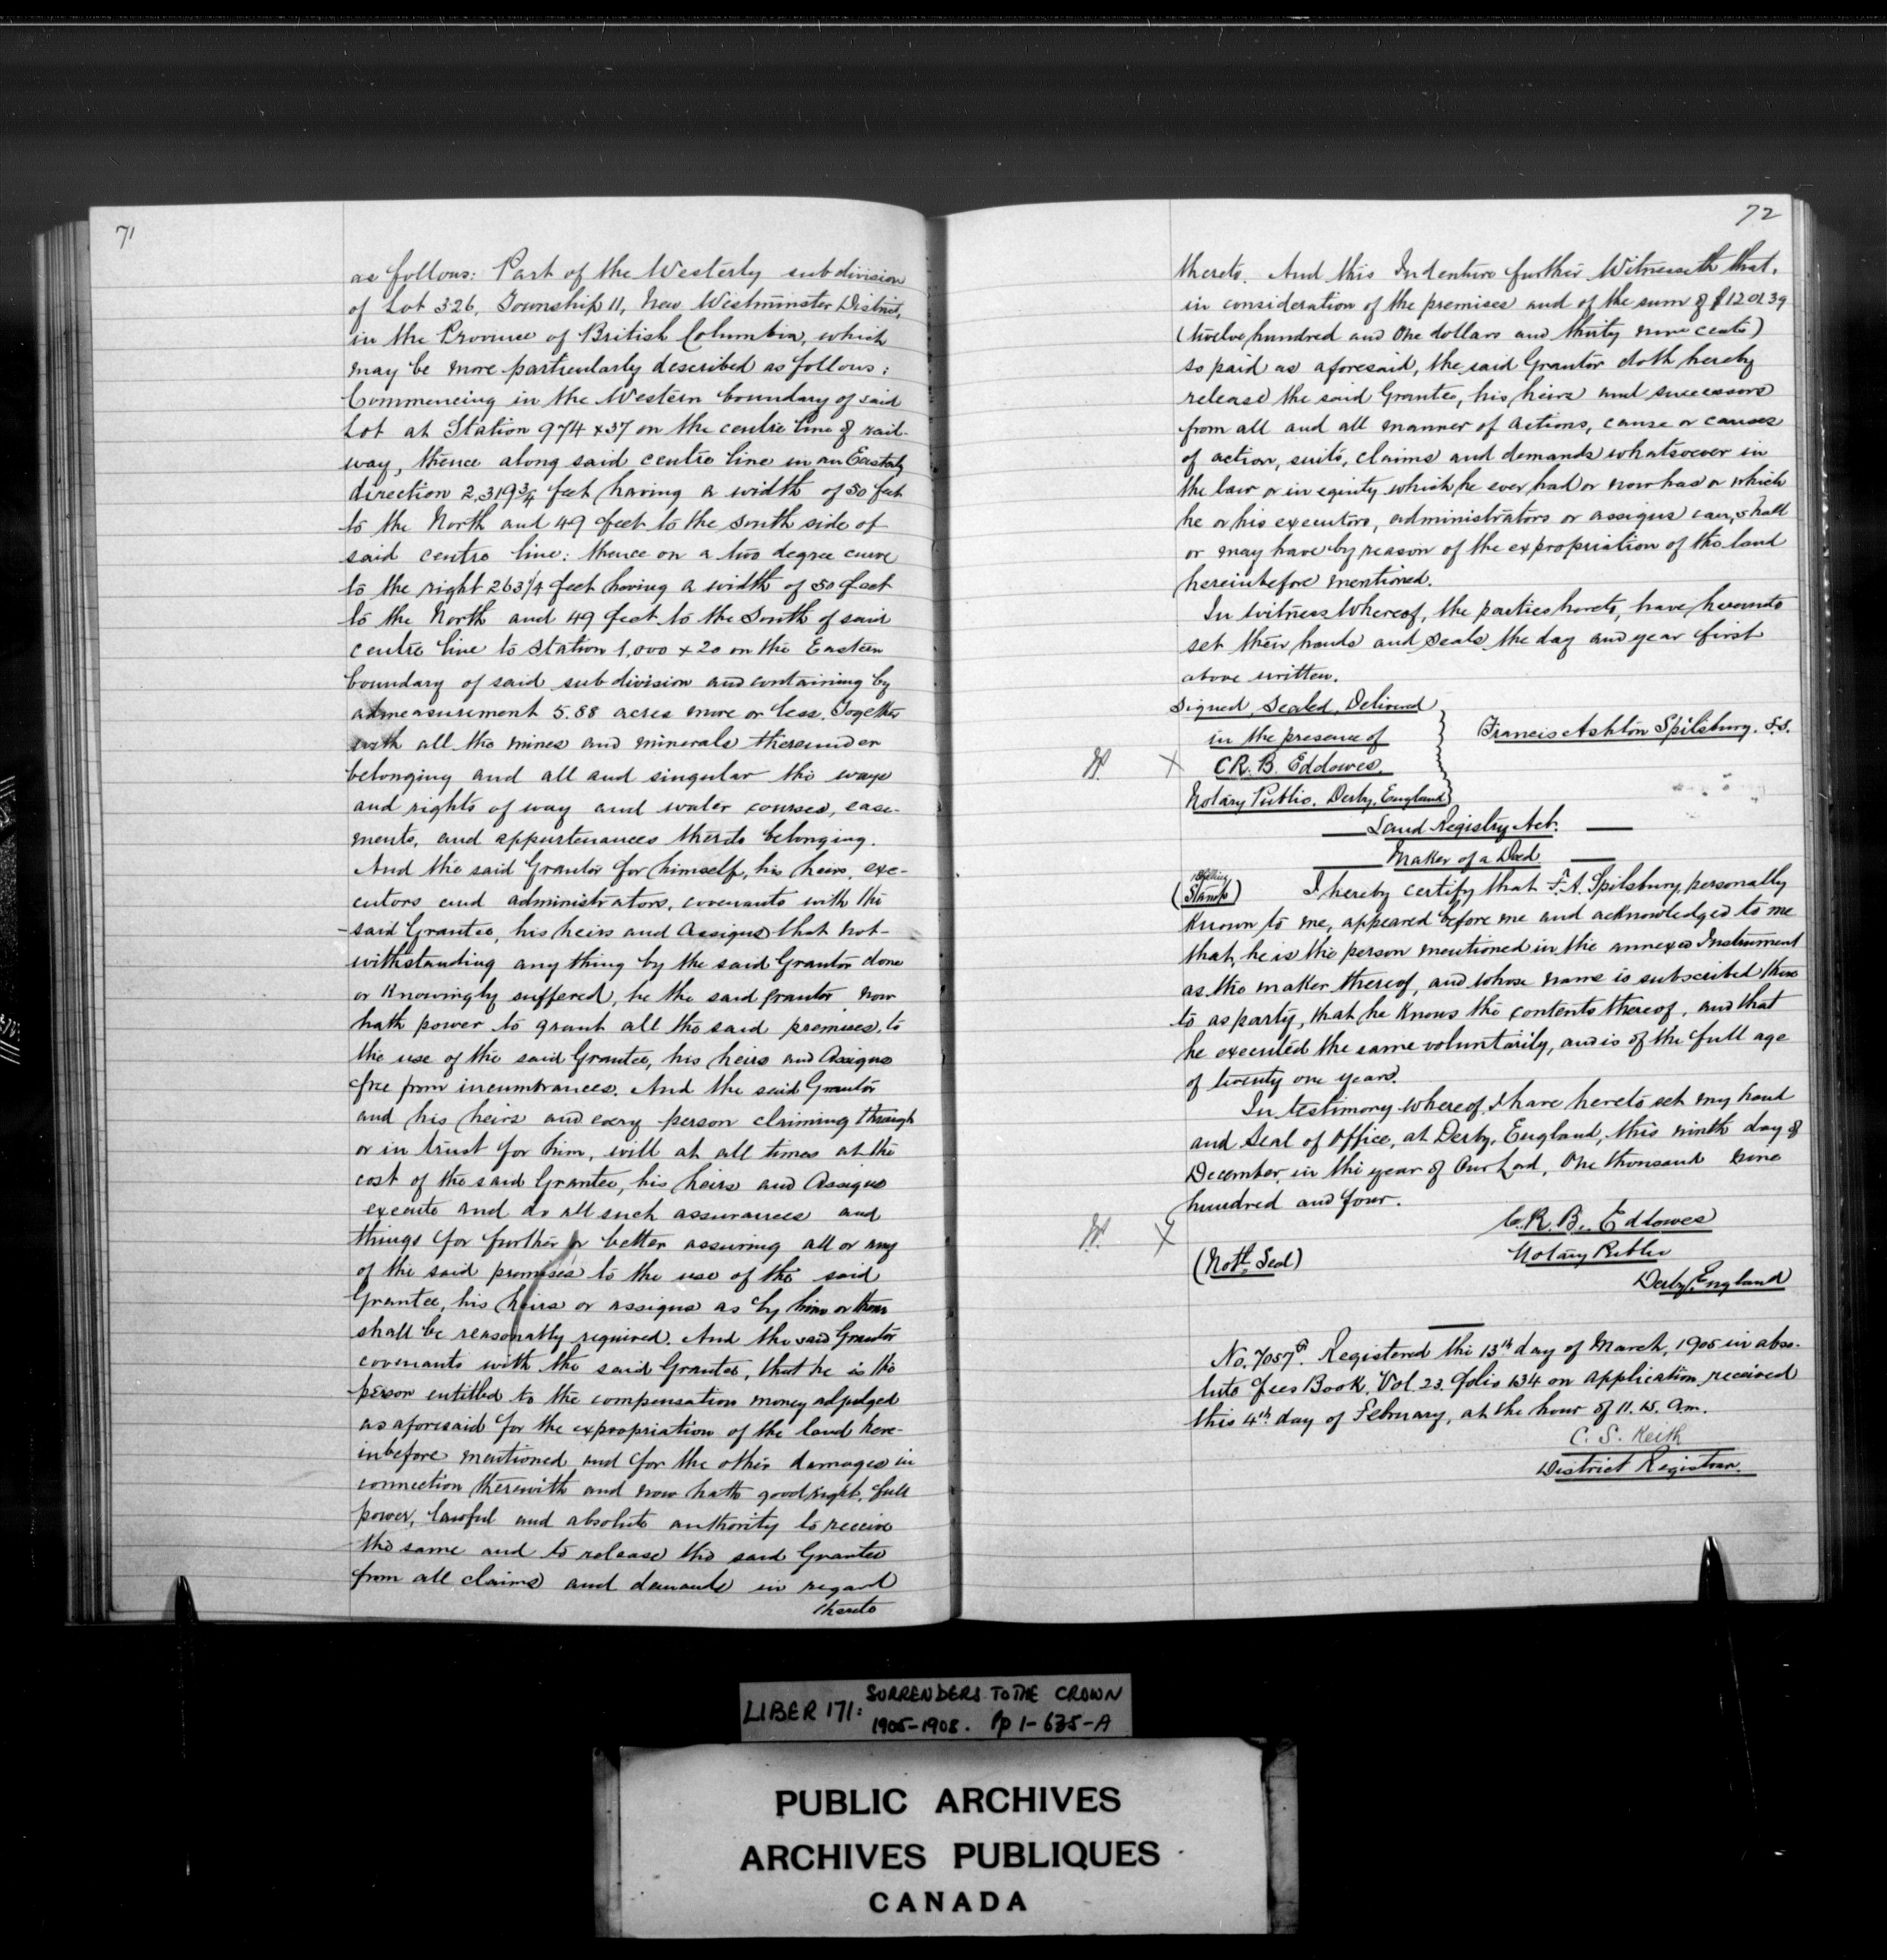 71
as follows: Part of the Westerly subdivision
of Lot 326, Township 11, New Westminster District,
in the Province of British Columbia, which
may be more particularly described as follows:
Commencing in the Western boundary of said
Lot at Station 974 x 37 on the centre line of rail-
way, thence along said centre line in an Easterly
direction 2,319 3/4 feet having a width of 50 feet
to the North and 49 feet to the South side of
said centre line: thence on a two degree curve
to the right 263 1/4 feet having a width of 50 feet
to the North and 49 feet to the South of said
centre line to Station 1,000 x 20 on the Eastern
boundary of said subdivision and containing by
admeasurement 5.88 acres more or less. Together
with all the mines and minerals thereunder
belonging and all and singular the ways
and rights of way and water courses, ease-
ments, and appurtenances thereto belonging.
And the said Grantor for himself, his heirs, exe-
cutors and administrators, covenants with the
said Grantee, his heirs and Assigns that not-
withstanding any thing by the said Grantor done
or Knowingly suffered, he the said grantor now
hath power to grant all the said premises, to
the use of the said Grantee, his heirs and Assigns
free from incumbrances. And the said Grantor
and his heirs and every person claiming through
or in trust for him, will at all times at the
cost of the said Grantee, his heirs and Assigns
execute and do all such assurances and
things for further or better assuring all or any
of the said premises to the use of the said
Grantee, his heirs or assigns as by him or them
shall be reasonably required. And the said Grantor
covenants with the said Grantee, that he is the
person entitled to the compensation money adjudged
as aforesaid for the expropriation of the land here-
inbefore mentioned and for the other damages in
connection therewith and now hath good right, full
power, lawful and absolute authority to receive
the same and to release the said Grantee
from all claims and demands in regard
thereto
72
thereto. And this Indenture further Witnesseth that,
in consideration of the premises and of the sum of $1201.39
(twelve hundred and One dollars and thirty nine cents)
so paid as aforesaid, the said Grantor doth hereby
release the said Grantee, his heirs and successors
from all and all manner of actions, cause or causes
of action, suits, claims and demands whatsoever in
the law or in equity which he ever had or now has or which
he or his executors, administrators or assigns can, shall
or may have by reason of the expropriation of the land
hereinbefore mentioned.
In Witness Whereof, the parties hereto, have hereunto
set their hands and seals the day and year first
above written.
Signed, Sealed, Delivered
in the presence of
Francis Ashton Spilsbury. S.S.
X C R. B. Eddowes.
Notary Public. Derby, England
Land Registry Act.
Maker of a Deed
1 Shilling
(Stamp) I hereby certify that F. A. Spilsbury, personally
Known to me, appeared before me and acknowledged to me
that he is the person mentioned in the annexed Instrument
as the maker thereof, and whose name is subscribed there
to as party, that he Knows the contents thereof, and that
he executed the same voluntarily, and is of the full age
of twenty one years.
In testimony whereof I have hereto set my hand
and Seal of Office, at Derby, England, this ninth day of
December, in the year of Our Lord, One thousand nine
hundred and four.
X C. R. B. Eddowes
(Not<sup>l</sup>. Seal) Notary Public
Derby, England
No. 7057<sup>a</sup>. Registered the 13th day of March, 1905 in abso-
lute fees Book, Vol 23. folio 134 on application received
this 4th day of February, at the hour of 11.15. am.
C. S. Keith
District Registrar.
LIBER 171: SURRENDERS TO THE CROWN
1905-1908. Pp 1-635-A
PUBLIC ARCHIVES
ARCHIVES PUBLIQUES
CANADA